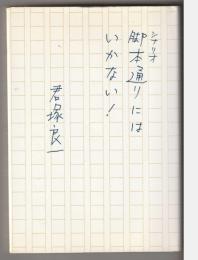 シナリオ
脚本通りには
いかない!
君塚良一